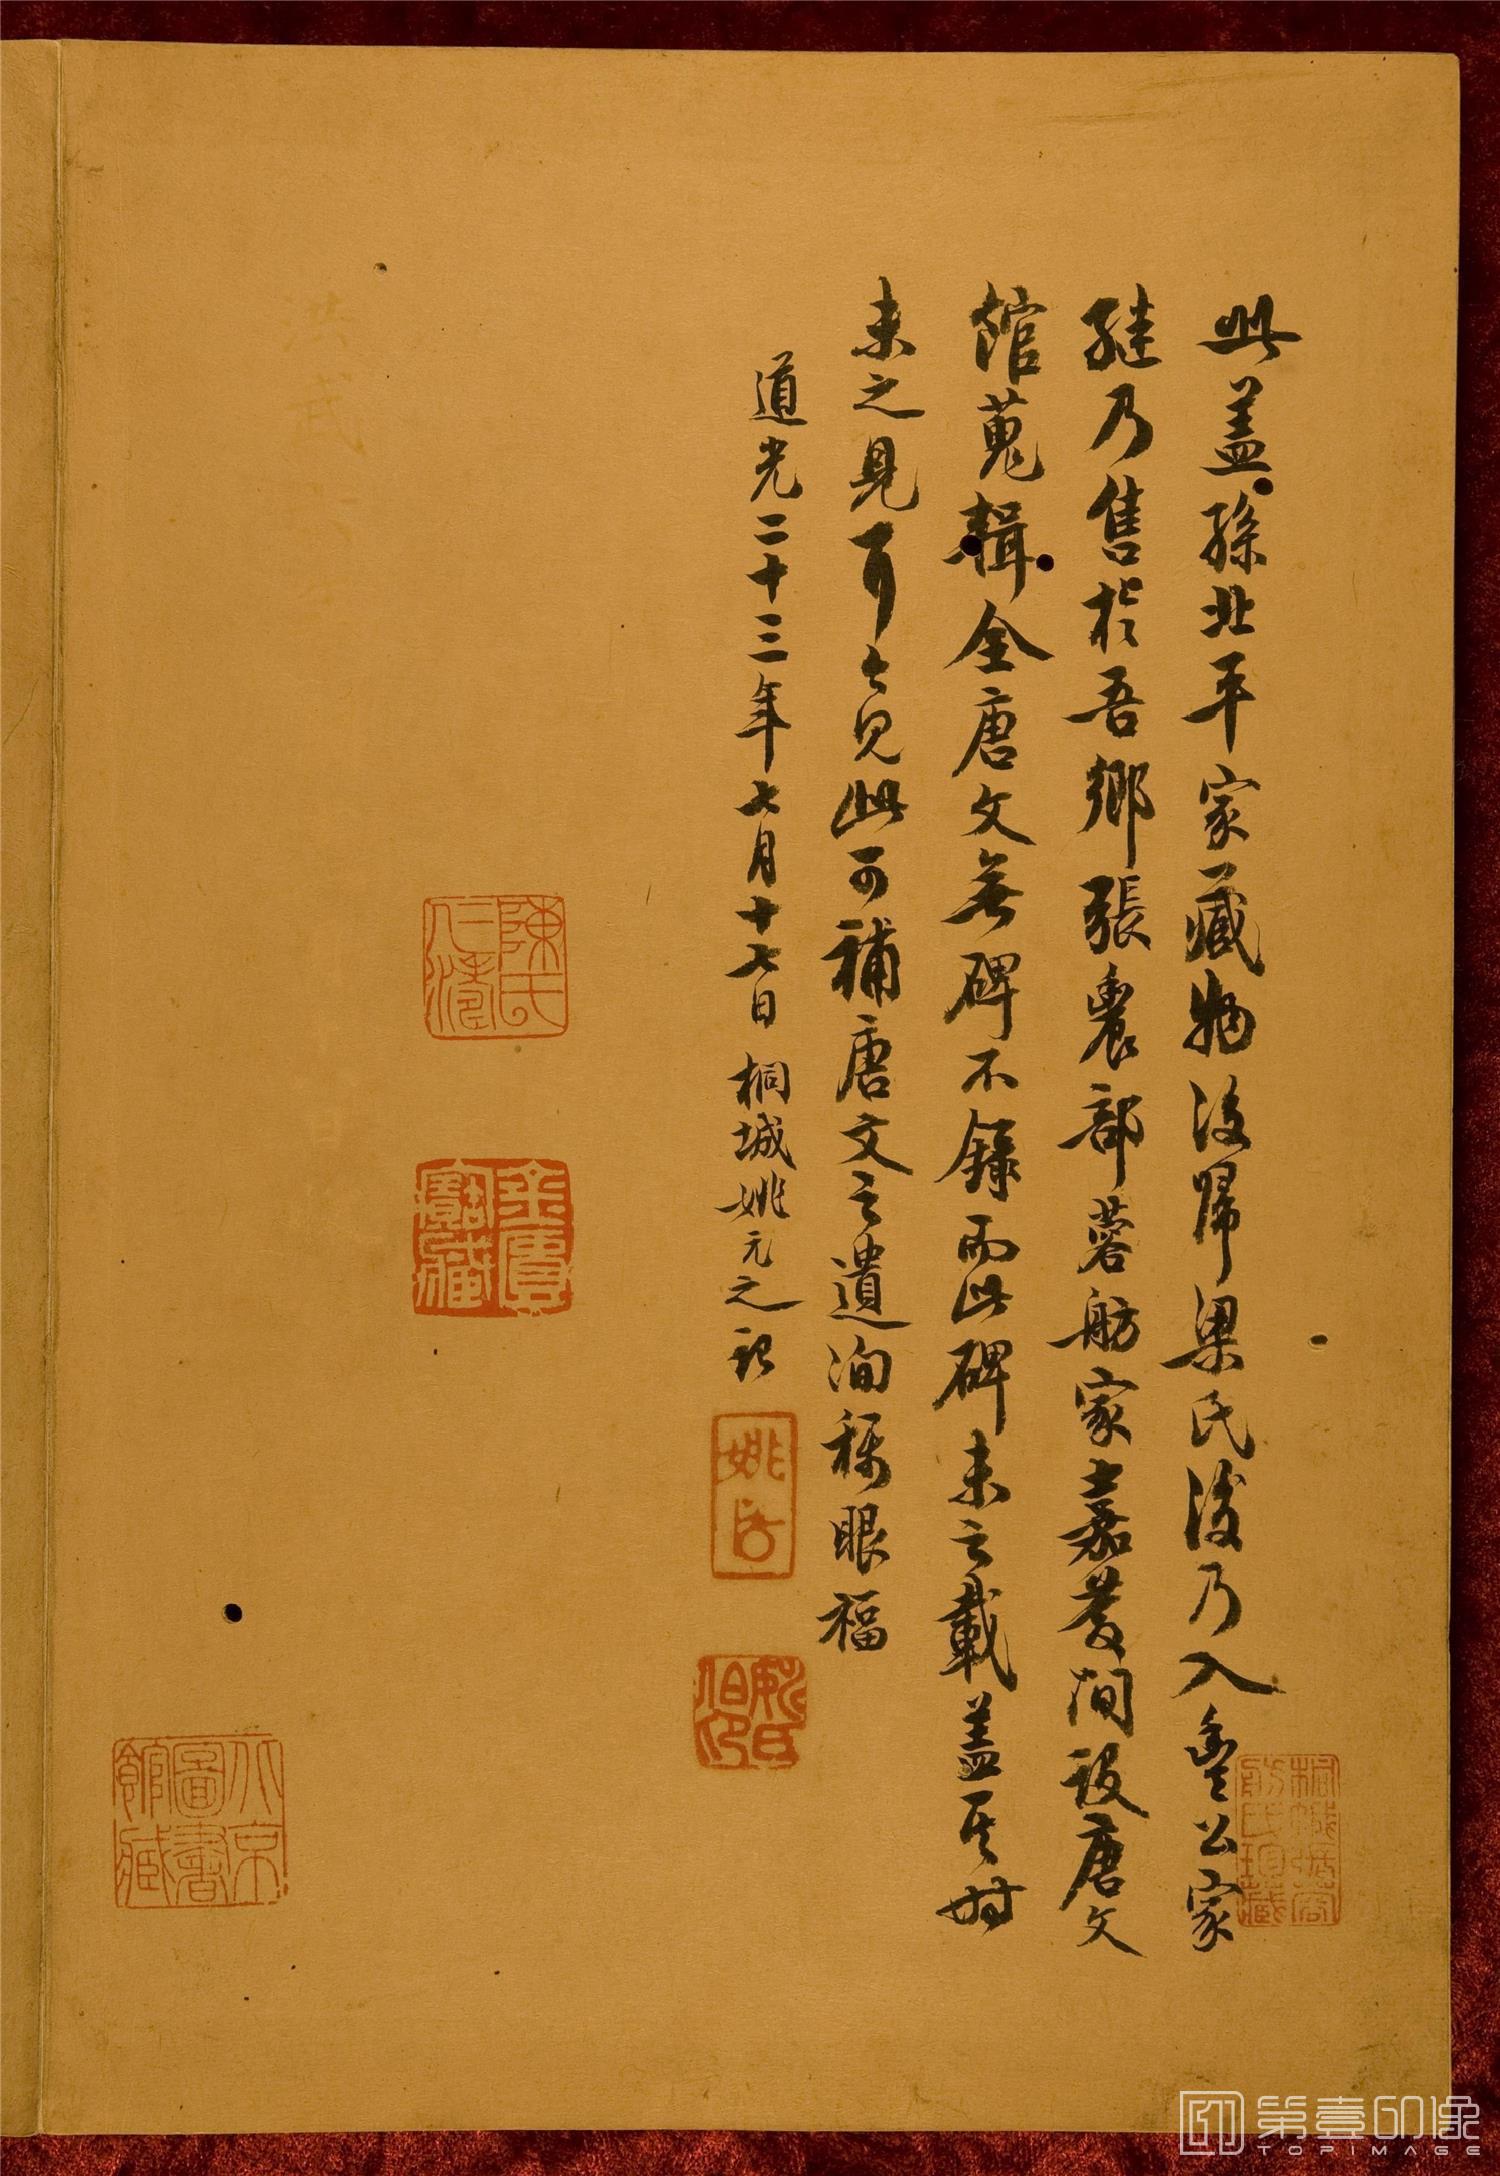 此盖孫北平家藏物後歸梁氏後乃入豐公家
繼乃售於吾鄉張農部蓉舫家嘉慶間設唐文
館蒐輯全唐文無碑不錄而此碑未之載盖其時
未之見耳今見此可補唐文之遺洵稱眼福
道光二十三年七月十七日桐城姚元之記
姚
姚氏伯印
陳氏仁濤
金匱室藏
北京圖書館藏
桐城張
氏珍藏
第壹印像
TOPIMAGE